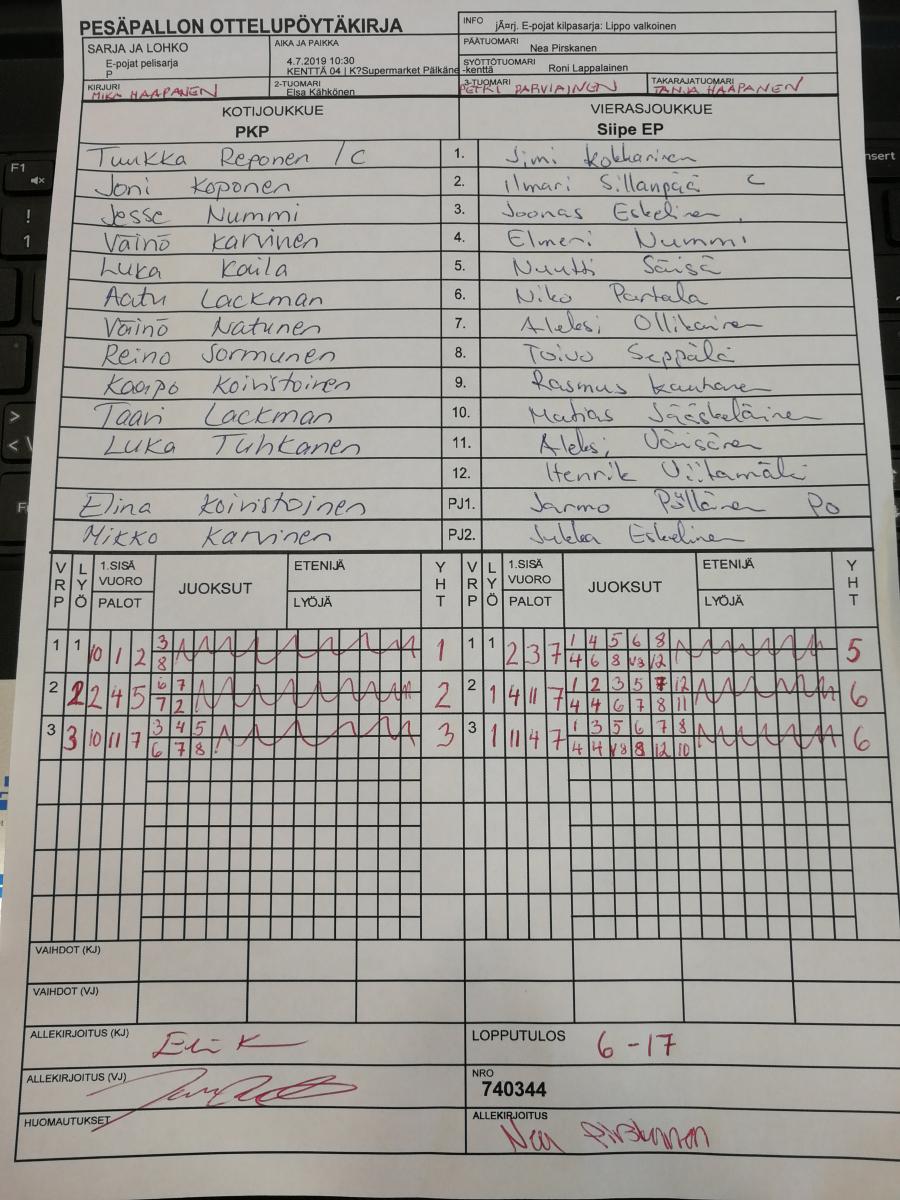 PESÄPALLON OTTELUPÖYTÄKIRJA
INFO jÃ¤rj. E-pojat kilpasarja: Lippo valkoinen
SARJA JA LOHKO
E-pojat pelisarja
P
AIKA JA PAIKKA
4.7.2019 10:30
KENTTÄ 04 | K?Supermarket Pälkäne -kenttä
PÄÄTUOMARI Nea Pirskanen
SYÖTTÖTUOMARI Roni Lappalainen
KIRJURI MIKA HAAPANEN
2-TUOMARI Elsa Kähkönen
3-TUOMARI PETRI PARVIAINEN
TAKARAJATUOMARI TANJA HAAPANEN
KOTIJOUKKUE VIERASJOUKKUE
PKP Siipe EP
Tuukka Reponen /C 1. Jimi Kokkarinen
Joni Koponen 2. Ilmari Sillanpää C
Jesse Nummi 3. Joonas Eskelinen
Väinö Karvinen 4. Elmeri Nummi
Luka Kaila 5. Nuutti Säisä
Aatu Lackman 6. Niko Partala
Väinö Natunen 7. Aleksi Ollikainen
Reino Sormunen 8. Toivo Seppälä
Kaapo Koivistoinen 9. Rasmus Kauhanen
Taavi Lackman 10. Matias Jääskeläinen
Luka Tuhkanen 11. Aleksi Väisänen
12. Henrik Viitamäki
Elina Koivistoinen PJ1. Jarmo Pöllänen Po
Mikko Karvinen PJ2. Jukka Eskelinen
VRP LYÖ 1.SISÄ VUORO PALOT JUOKSUT ETENIJÄ LYÖJÄ YHT VRP LYÖ 1.SISÄ VUORO PALOT JUOKSUT ETENIJÄ LYÖJÄ YHT
1 1 10 1 2 3 1 1 1 2 3 7 1 4 5 6 8 5
8 4 6 8 V3 12
2 2 2 4 5 6 7 2 2 1 4 11 7 1 2 3 5 7 12 6
7 2 4 4 6 7 8 11
3 3 10 11 7 3 4 5 3 3 1 11 4 7 1 3 5 6 7 8 6
6 7 8 4 4 V8 8 12 10
VAIHDOT (KJ)
VAIHDOT (VJ)
ALLEKIRJOITUS (KJ) Eli K LOPPUTULOS 6 - 17
ALLEKIRJOITUS (VJ) NRO
740344
HUOMAUTUKSET ALLEKIRJOITUS
Nea Pirskanen
F1
!
1
Insert
>
<